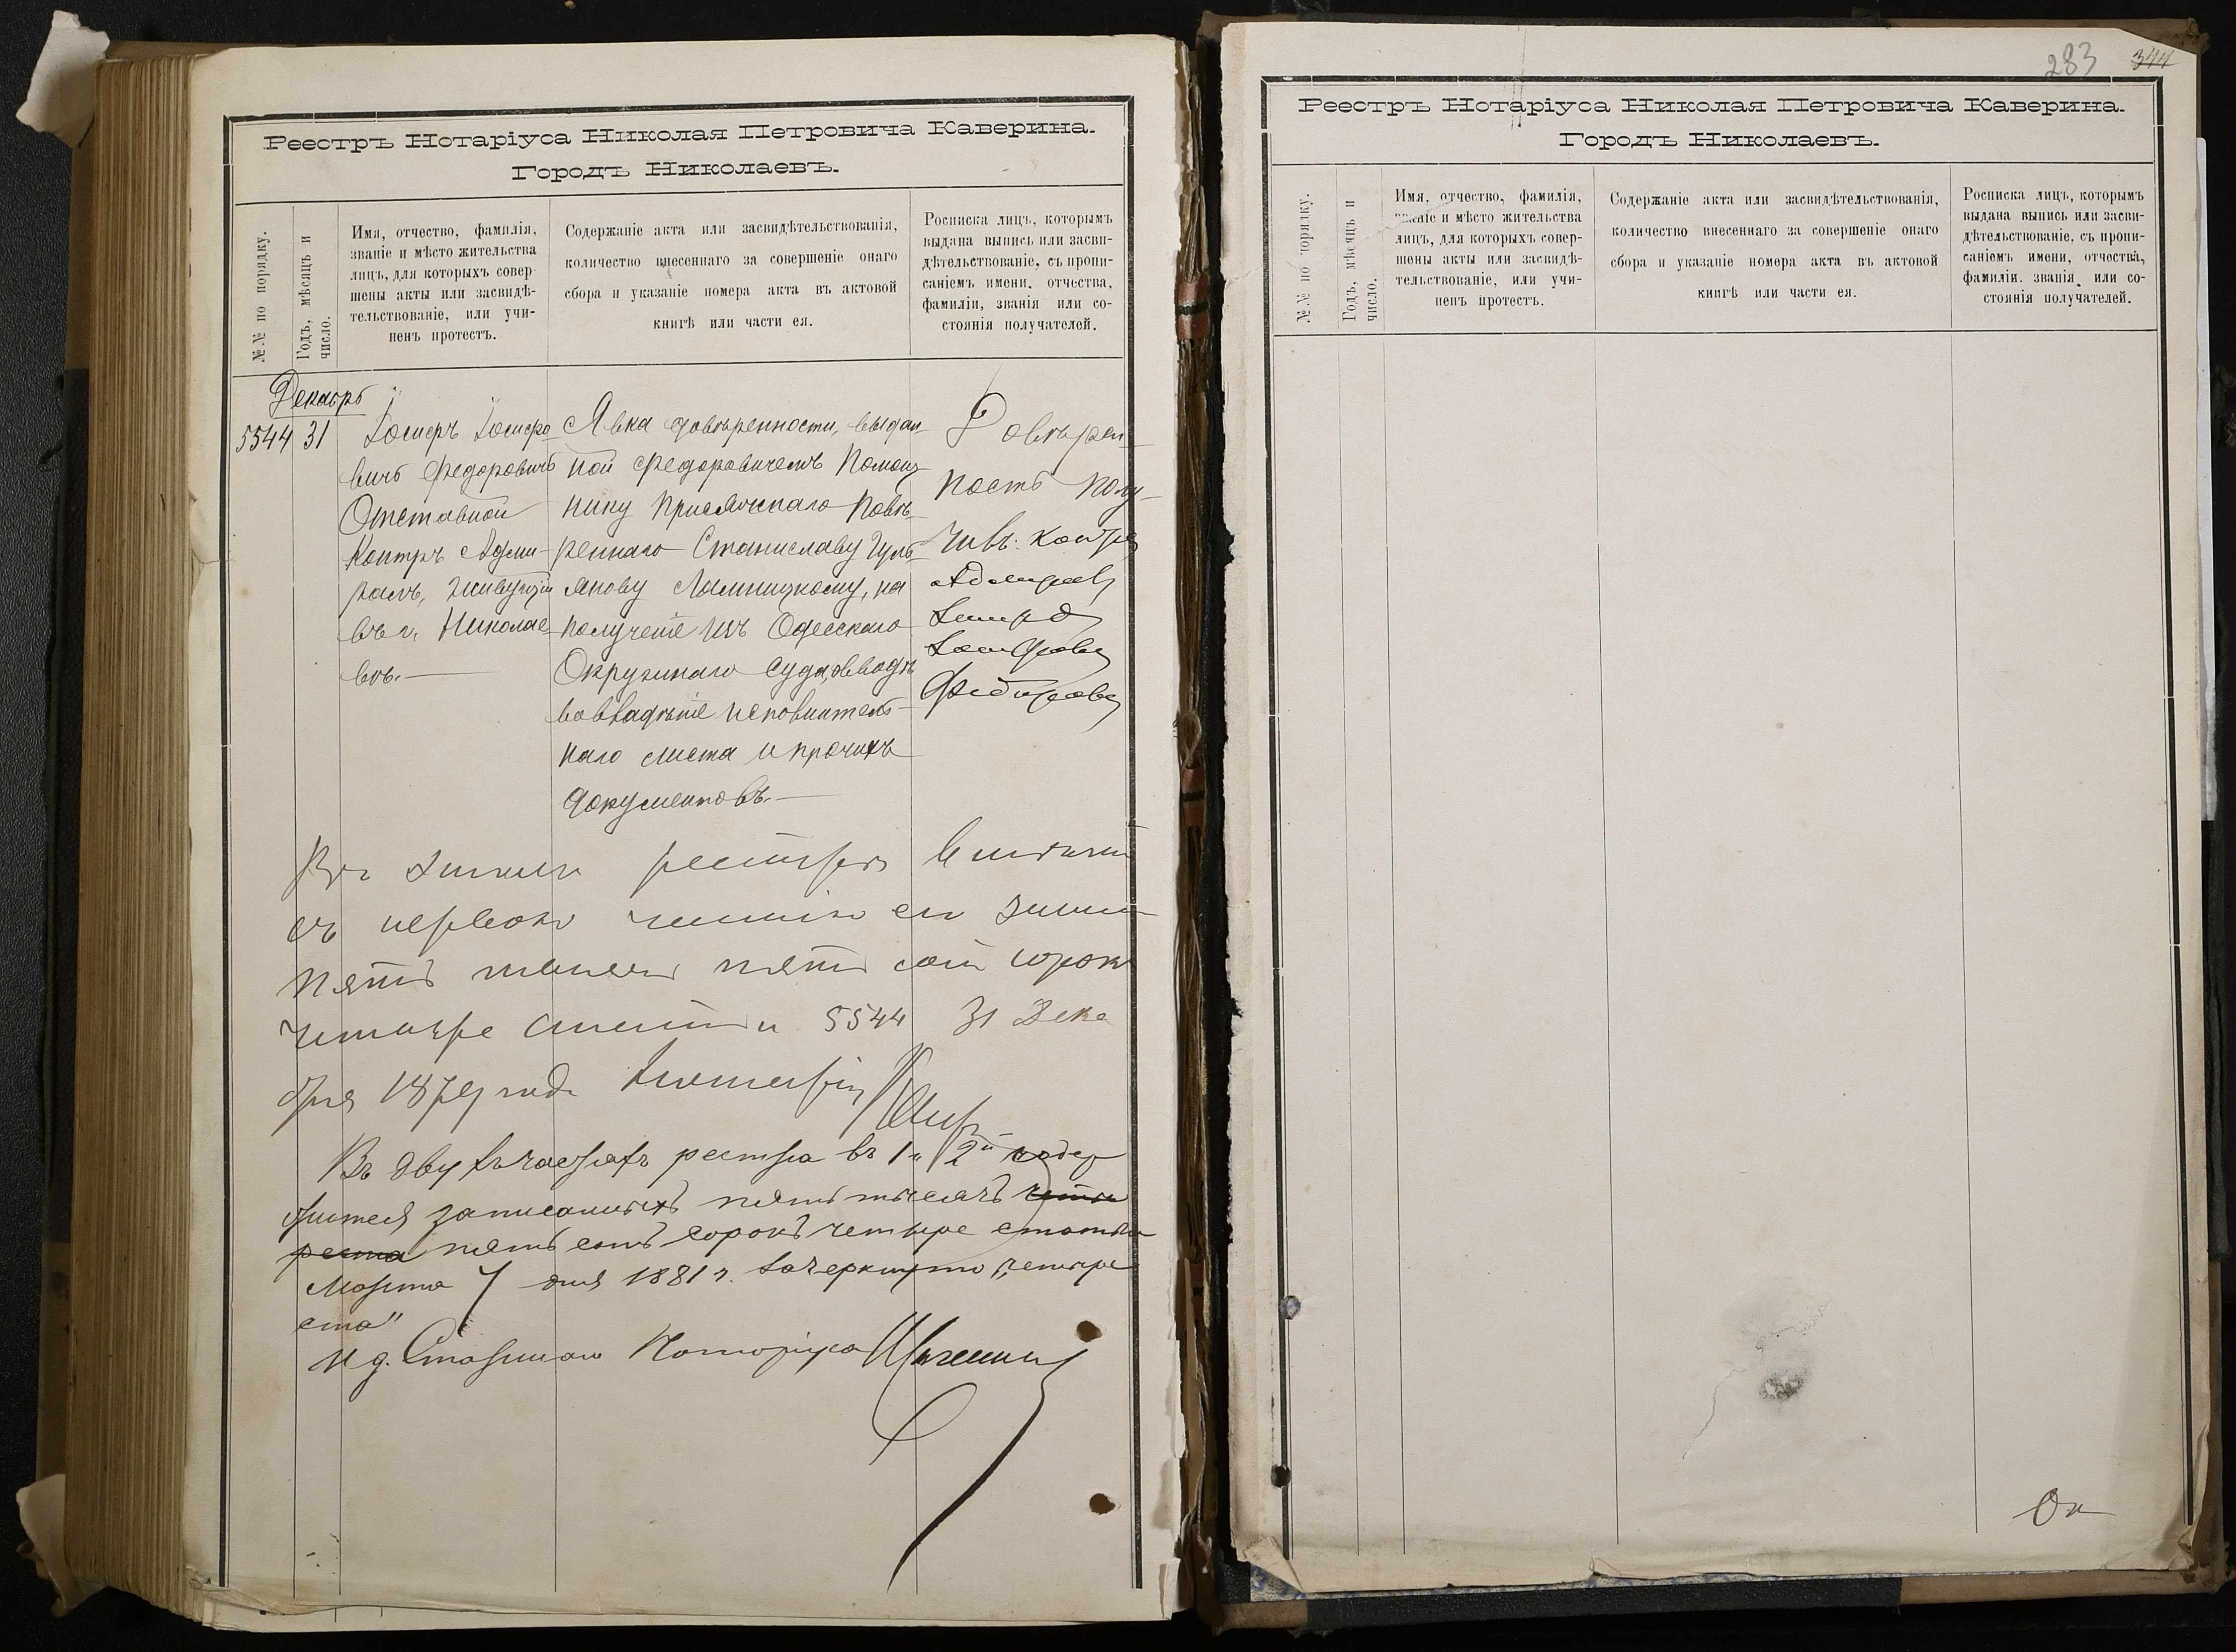 Реестръ Нотаріуса Николая Петровича Каверина.
Городъ Николаевъ.
№.№ по порядку.
Годъ, мѣсяцъ и
число.
Имя, отчество, фамилія,
званіе и мѣсто жительства
лицъ, для которыхъ совер-
шены акты или засвидѣ-
тельствованіе, или учи-
ненъ протестъ.
Содержаніе акта или засвидѣтельствованія,
количество внесеннаго за совершеніе онаго
сбора и указаніе номера акта въ актовой
книгѣ или части ея.
Росписка лицъ, которымъ
выдана выпись или засви-
дѣтельствованіе, съ пропи-
саніемъ имени, отчества,
фамиліи, званія или со-
стоянія получателей.
Декабрь
5544
31
Іосифъ Іосифо
вичъ Федоровичъ
Отставной
Контръ Адми-
ралъ, живущій
въ г. Николае-
вѣ.
Явка довѣренности, выдан-
ной Федоровичемъ Помощ-
нику Присяжнаго Повѣ-
реннаго Станиславу
на
полученіе изъ Одесскаго
Окружнаго Суда, вводѣ
во владѣніе исполнитель-
наго листа и прочихъ
документовъ.
Довѣрен-
ность полу-
чивъ: контръ
Адмиралъ
Іосифъ
Іосифовъ
Федоровъ
Въ реестрѣ
съ первою
пять тысячъ пять сотъ сорокъ
четыре статьи 5544 31 Дека
бря 1879 года Нотаріусъ
Въ двухъ частяхъ реестра въ 1 и 2й содер
жится записанныхъ пять тысячъ четы
реста пять сотъ сорокъ четыре статьи
Марта 7 дня 1881 г. Зачеркнуто „четыре
ста"
И д. Старшаго Нотаріуса
283
344
Реестръ Нотаріуса Николая Петровича Каверина.
Городъ Николаевъ.
№.№ по порядку.
Годъ, мѣсяцъ и
число.
Имя, отчество, фамилія,
званіе и мѣсто жительства
лицъ, для которыхъ совер-
шены акты или засвидѣ-
тельствованіе, или учи-
ненъ протестъ.
Содержаніе акта или засвидѣтельствованія,
количество внесеннаго за совершеніе онаго
сбора и указаніе номера акта въ актовой
книгѣ или части ея.
Росписка лицъ, которымъ
выдана выпись или засви-
дѣтельствованіе, съ пропи-
саніемъ имени, отчества,
фамиліи. званія, или со-
стоянія получателей.